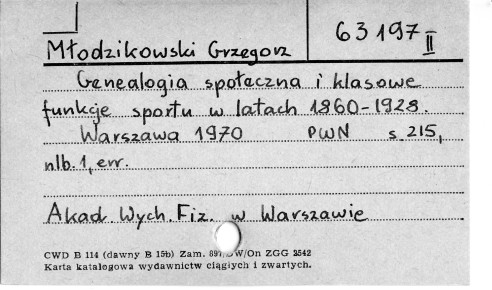 63197 II
Młodzikowski Grzegorz
Genealogia społeczna i klasowe
funkcje sportu w latach 1860-1928.
Warszawa 1970 PWN s. 215,
nlb. 1, err.
Akad. Wych. Fiz. w Warszawie
CWD B 114 (dawny B 15b) Zam. 897/DW/On ZGG 3542
Karta katalogowa wydawnictw ciągłych i zwartych.